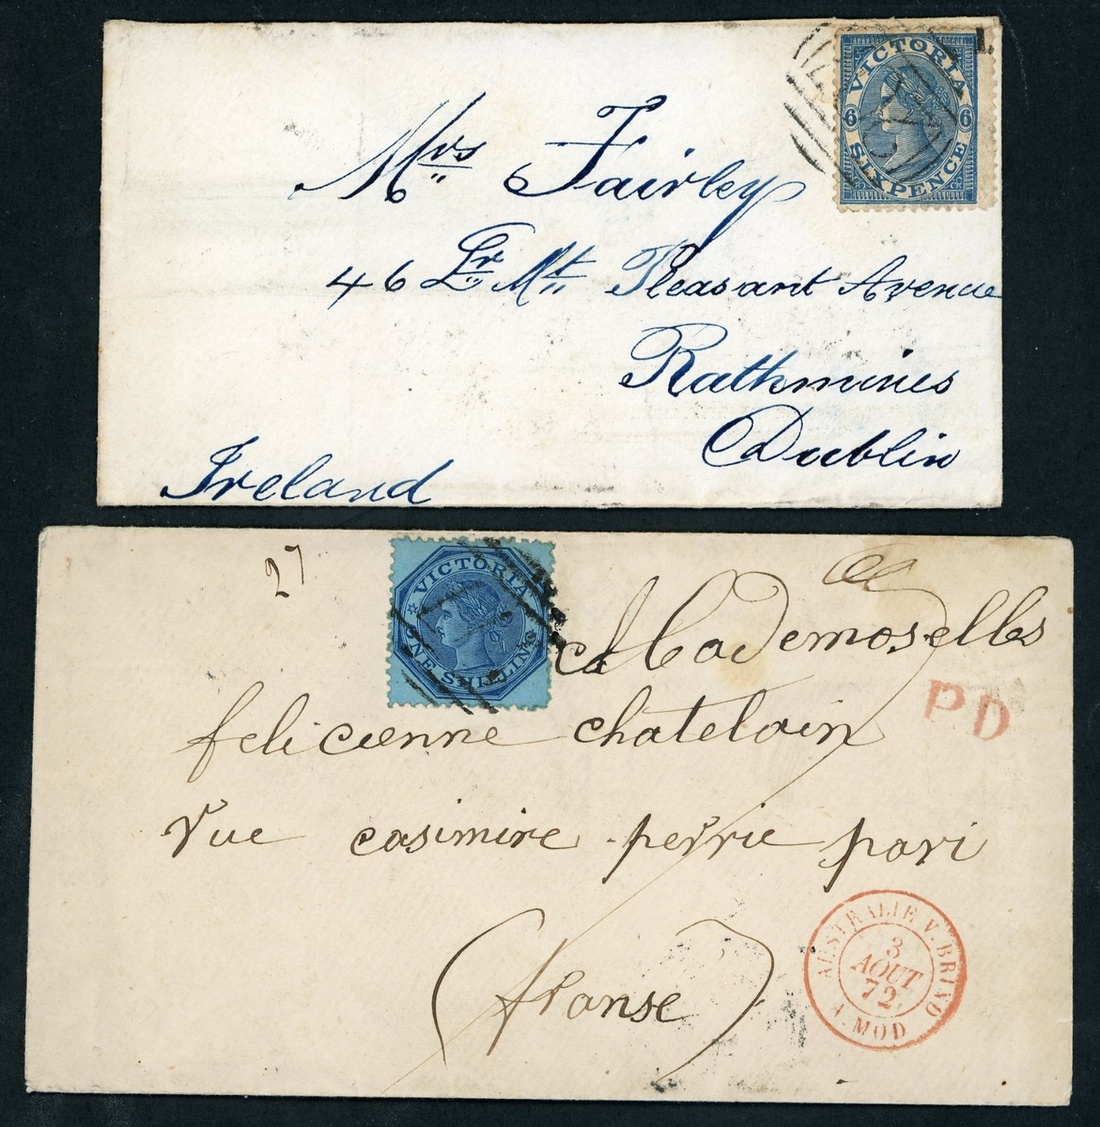 VICTORIA
6 6
SIXPENCE
Mrs Fairley
46 Pr Mt Pleasant Avenue
Rathmines
Dublin
Ireland
27
VICTORIA
ONE SHILLING
Mademoselles
felicienne chatelain
P D
rue casimire perrie pari
(franse)
AUSTRALIE V. BRIND
3
AOUT
72
A. MOD